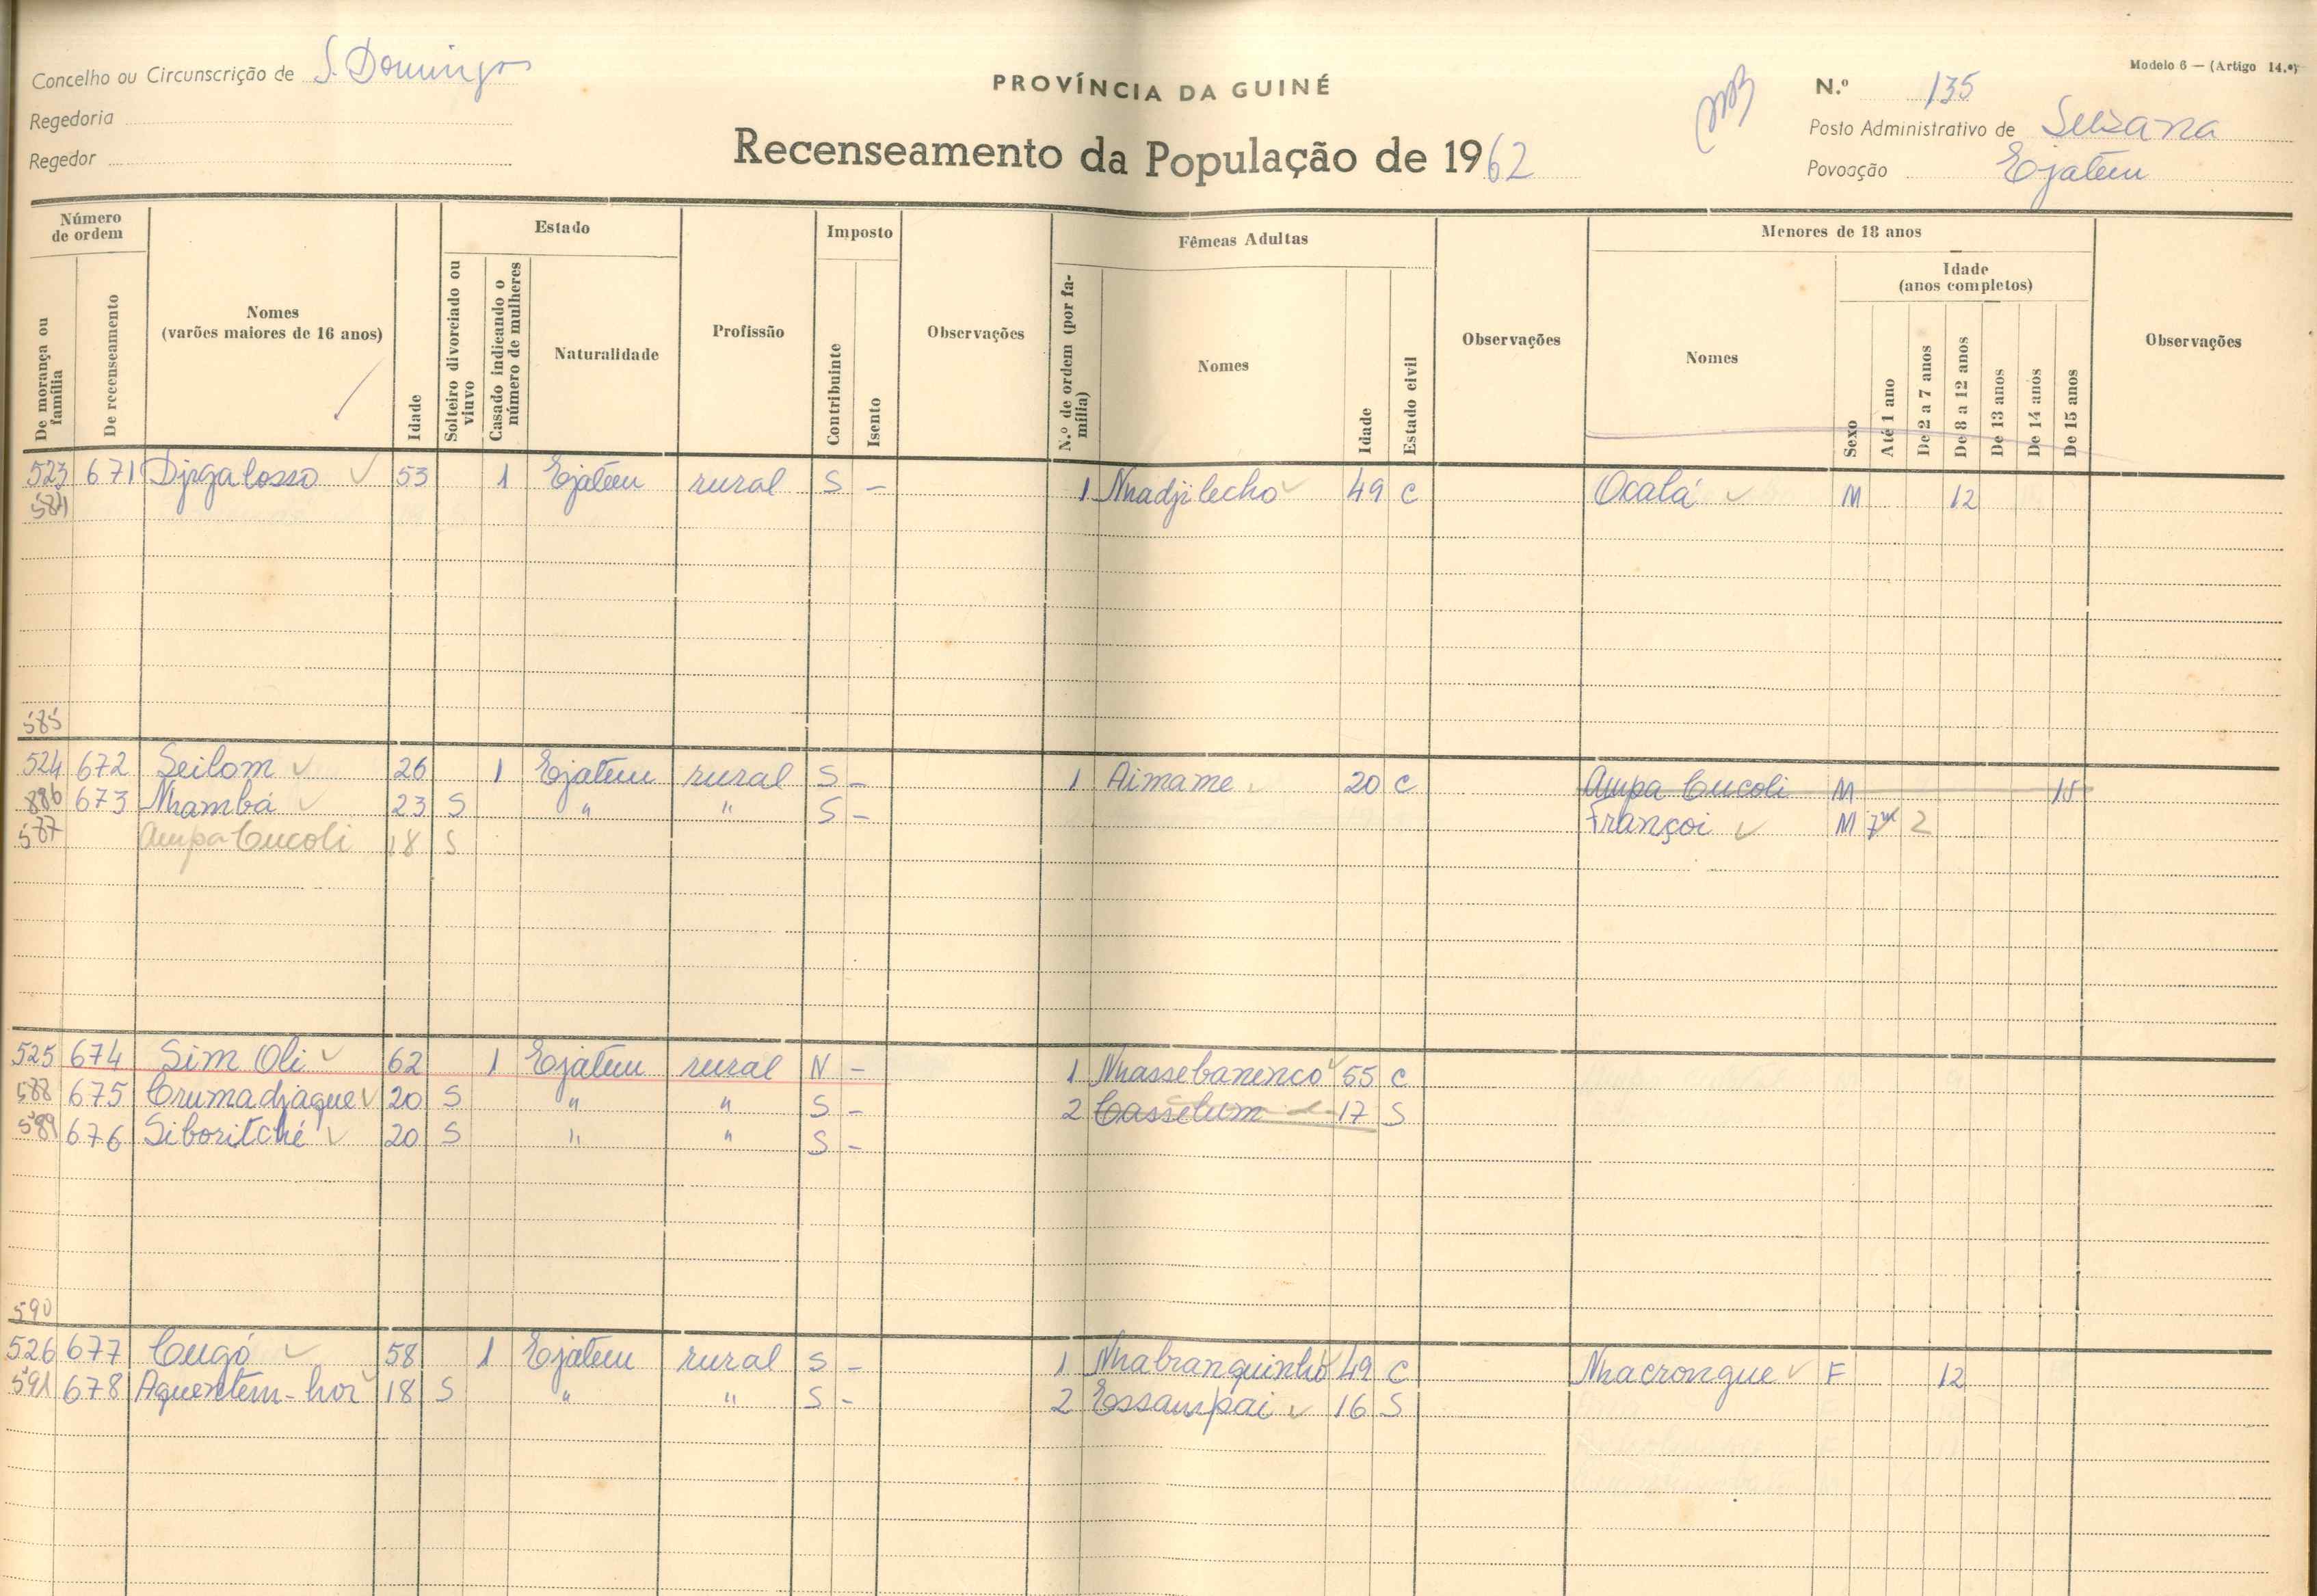 Concelho ou Circunscrição de S. Domingos
Regedoria
Regedor
PROVÍNCIA DA GUINÉ
Recenseamento da População de 1962
Modelo 6 — (Artigo 14.º)
N.º 135
Posto Administrativo de Susana
Povoação Ejatem
Número de ordem
De morança ou família
De recenseamento
Nomes
(varões maiores de 16 anos)
Idade
Estado
Solteiro divorciado ou viuvo
Casado indicando o número de mulheres
Naturalidade
Profissão
Imposto
Contribuinte
Isento
Observações
Fêmeas Adultas
N.º de ordem (por família)
Nomes
Idade
Estado civil
Observações
Menores de 18 anos
Nomes
Sexo
Idade
(anos completos)
Até 1 ano
De 2 a 7 anos
De 8 a 12 anos
De 13 anos
De 14 anos
De 15 anos
Observações
523 671 Djigalosso 53 1 Ejatem rural S - 1 Nhadjilecho 49 C Ocalá M 12
584
585
524 672 Seilom 26 1 Ejatem rural S - 1 Aimame 20 C Ampa Cucoli M 15
586 673 Nhambá 23 S " " S - Françoi M 7m 2
587 Ampa Cucoli 18 S
525 674 Sim Oli 62 1 Ejatem rural N - 1 Nhassebanenco 55 C
588 675 Crumadjaque 20 S " " S - 2 Casselum 17 S
589 676 Siboritché 20 S " " S -
590
526 677 Cugó 58 1 Ejatem rural S - 1 Nhabranquinho 49 C Nhacrongue F 12
591 678 Aquentem-hoi 18 S " " S - 2 Essampai 16 S